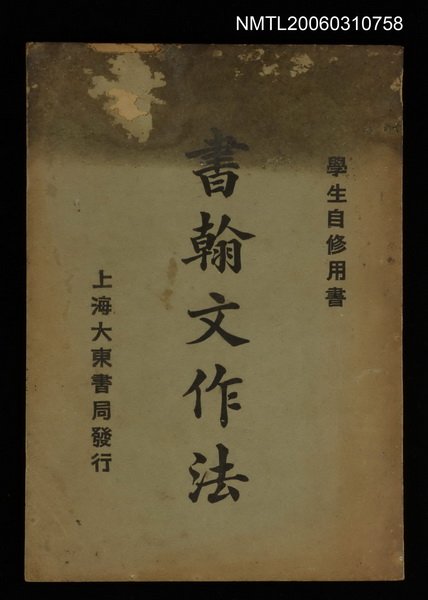 NMTL20060310758
學生自修用書
書翰文作法
上海大東書局發行